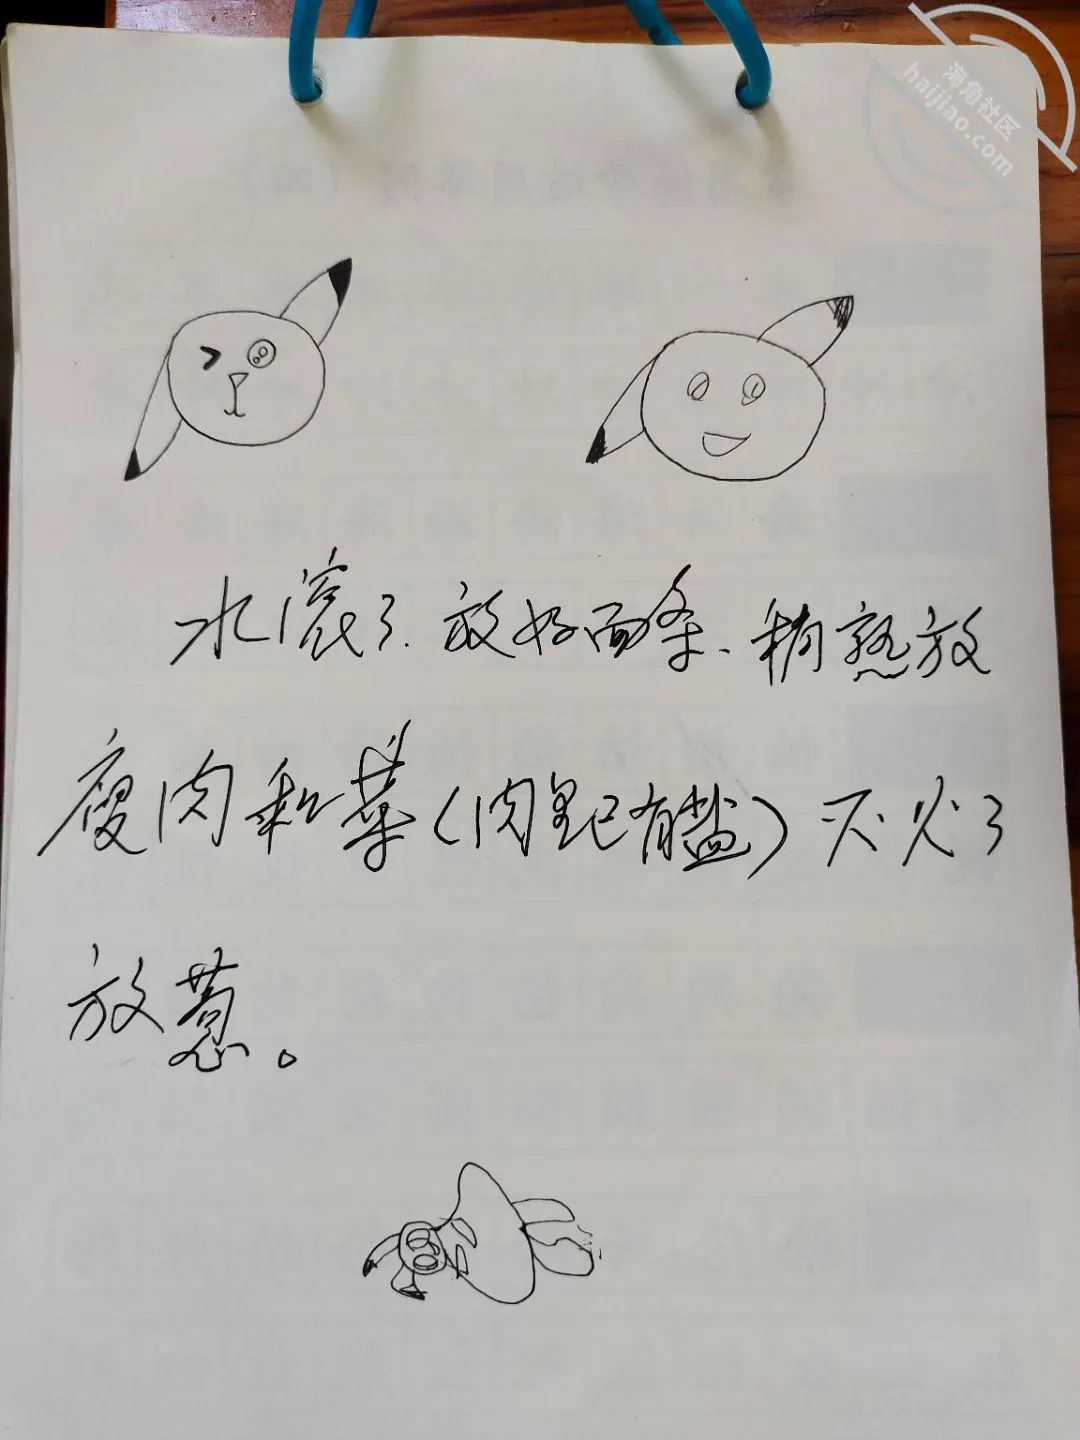 海角社区
haijiao.com
水滚了.放好面条、稍熟放
瘦肉和菜(肉里已有盐)灭火了
放葱。